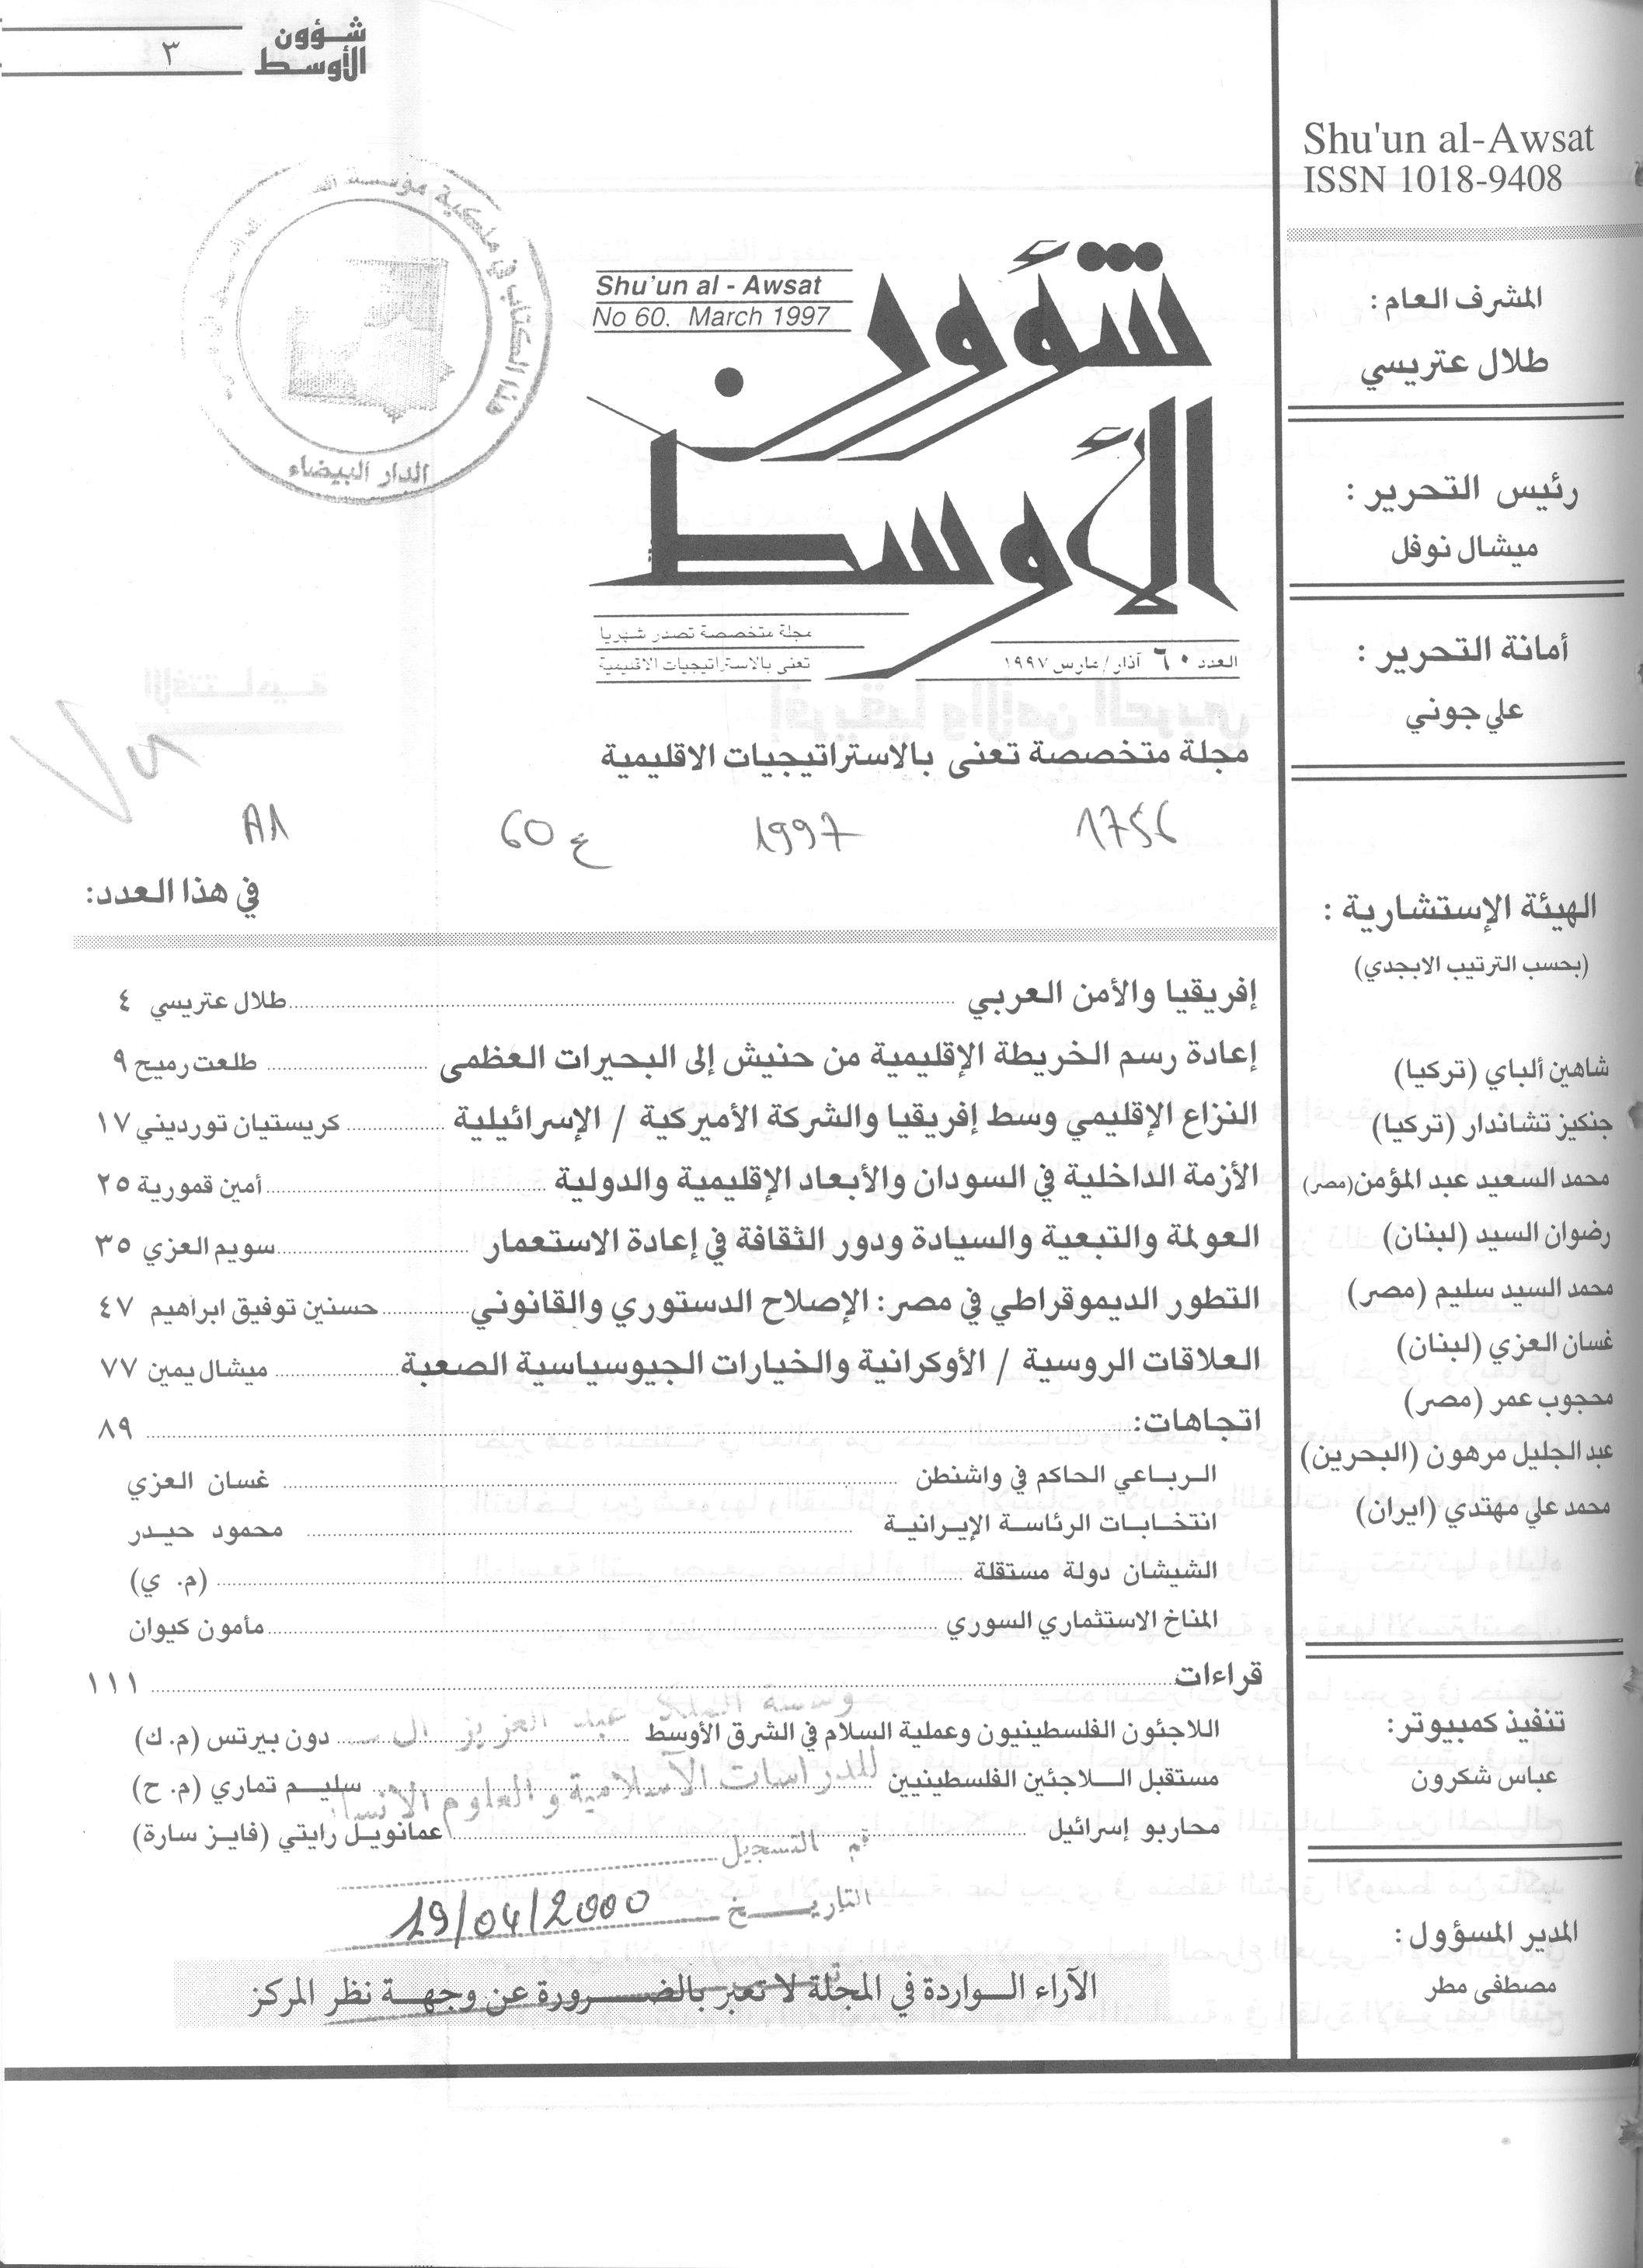 شؤون
الأوسط
٣
Shu'un al-Awsat
ISSN 1018-9408
المشرف العام :
طلال عتريسي
رئيس التحرير :
ميشال نوفل
أمانة التحرير :
علي جوني
الهيئة الإستشارية :
(بحسب الترتيب الابجدي)
شاهين ألباي (تركيا)
جنكيز تشاندار (تركيا)
محمد السعيد عبد المؤمن (مصر)
رضوان السيد (لبنان)
محمد السيد سليم (مصر)
غسان العزي (لبنان)
محجوب عمر (مصر)
عبد الجليل مرهون (البحرين)
محمد علي مهتدي (ايران)
تنفيذ كمبيوتر:
عباس شكرون
المدير المسؤول :
مصطفى مطر
هذا الكتاب في ملكية مؤسسة
الدار البيضاء
Shu'un al - Awsat
No 60. March 1997
شؤون
الأوسط
مجلة متخصصة تصدر شهريا
تعنى بالاستراتيجيات الاقليمية
العدد ٦٠ آذار/مارس ١٩٩٧
مجلة متخصصة تعنى بالاستراتيجيات الاقليمية
1756 1997 ع 60 A1
في هذا العدد:
إفريقيا والأمن العربي ........ طلال عتريسي ٤
إعادة رسم الخريطة الإقليمية من حنيش إلى البحيرات العظمى ........ طلعت رميح ٩
النزاع الإقليمي وسط إفريقيا والشركة الأميركية / الإسرائيلية ........ كريستيان تورديني ١٧
الأزمة الداخلية في السودان والأبعاد الإقليمية والدولية ........ أمين قمورية ٢٥
العولمة والتبعية والسيادة ودور الثقافة في إعادة الاستعمار ........ سويم العزي ٣٥
التطور الديموقراطي في مصر: الإصلاح الدستوري والقانوني ........ حسنين توفيق ابراهيم ٤٧
العلاقات الروسية / الأوكرانية والخيارات الجيوسياسية الصعبة ........ ميشال يمين ٧٧
اتجاهات: ........ ٨٩
الرباعي الحاكم في واشنطن ........ غسان العزي
انتخابات الرئاسة الإيرانية ........ محمود حيدر
الشيشان دولة مستقلة ........ (م. ي)
المناخ الاستثماري السوري ........ مأمون كيوان
قراءات ........ ١١١
اللاجئون الفلسطينيون وعملية السلام في الشرق الأوسط ........ دون بيرتس (م. ك)
مستقبل اللاجئين الفلسطينيين ........ سليم تماري (م. ح)
محاربو إسرائيل ........ عمانويل رايتي (فايز سارة)
وسسة الملك عبد العزيز ال
للدراسات الآسلامية والعلوم الانسا
قم التسجيل
التاريخ 19/04/2000
الآراء الواردة في المجلة لا تعبر بالضرورة عن وجهة نظر المركز